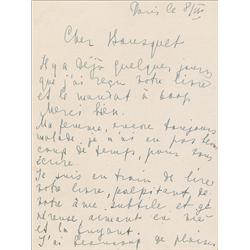 Paris le 8/VII
Cher Bousquet
Il y a déjà quelques jours
que j'ai reçu votre livre
et le mandat à
Merci bien.
Ma femme, encore toujours
malade, je n'ai eu pas beau
coup de temps, pour vous
écrire.
Je suis en train de lire
votre livre, palpitant de
votre âme, subtile et gé
néreuse, aimant la vie
et la fuyant.
J'ai beaucoup de plaisir